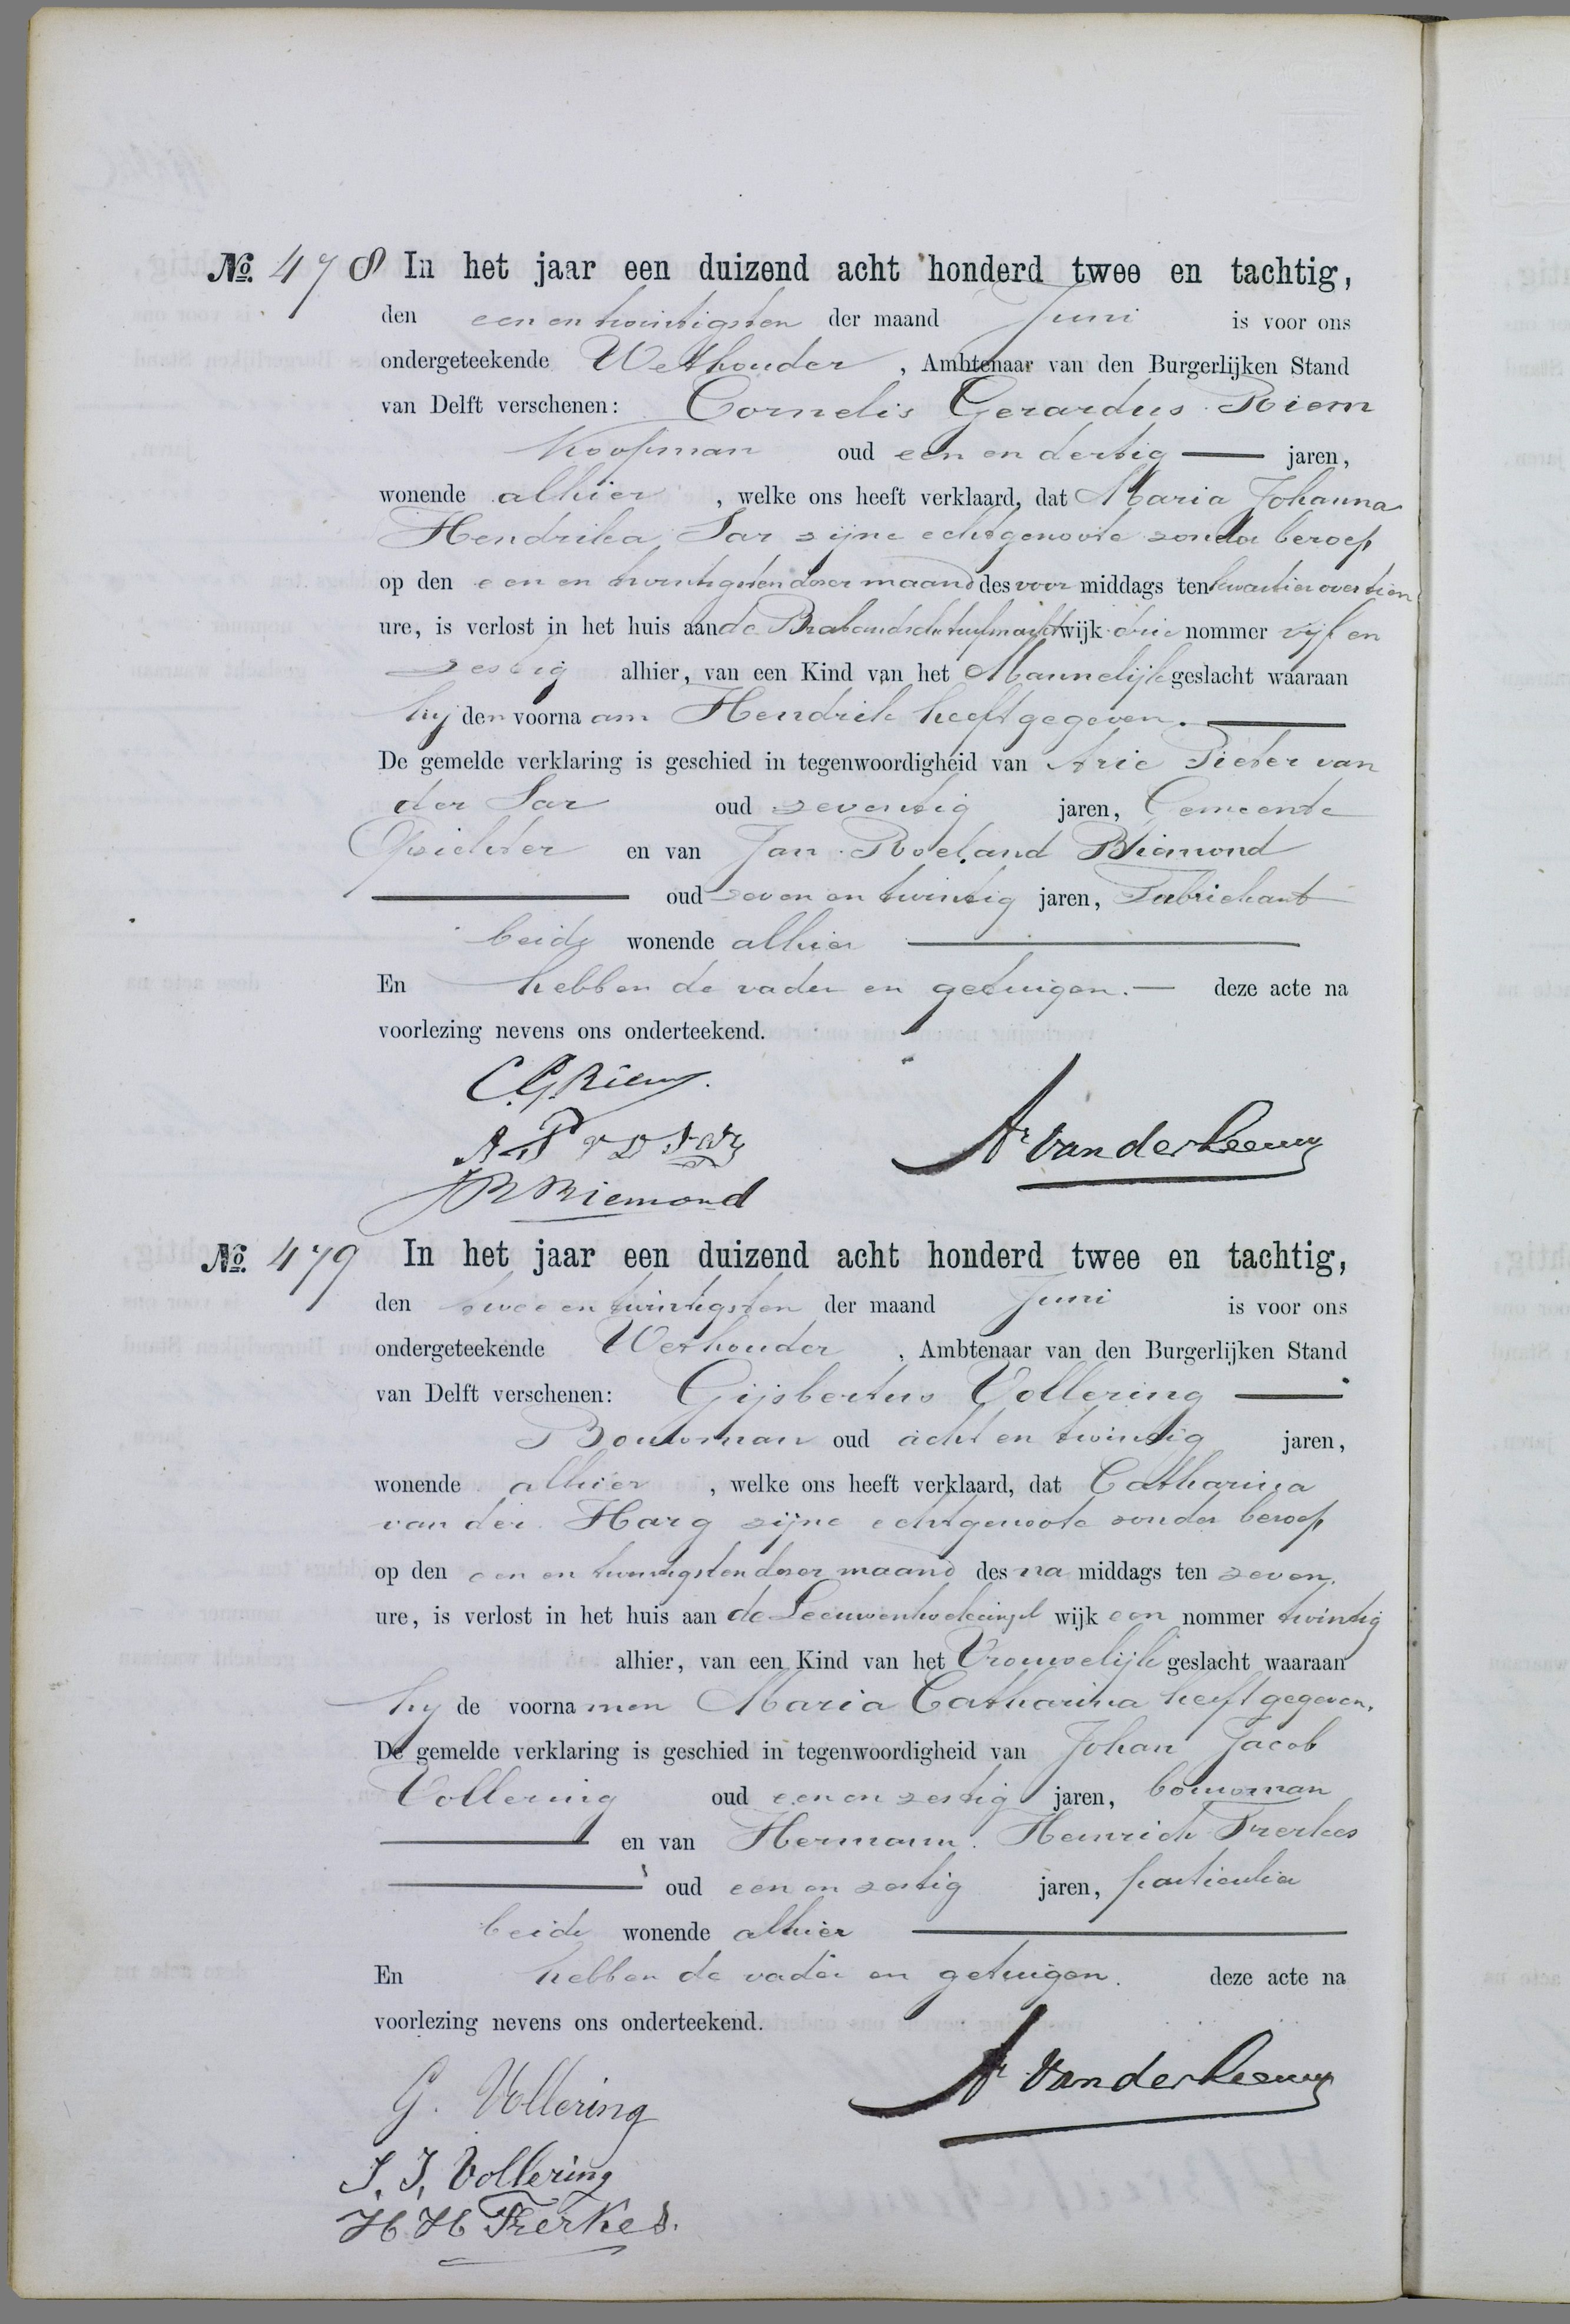 No. 478 In het jaar een duizend acht honderd twee en tachtig,
den een en twintigsten der maand Juni is voor ons
ondergeteekende Wethouder, Ambtenaar van den Burgerlijken Stand
van Delft verschenen: Cornelis Gerardus Riem
Koopman oud een en dertig — jaren,
wonende alhier, welke ons heeft verklaard, dat Maria Johanna
Hendrika Sar zijne echtgenoote zonder beroep
op den een en twintigsten dezer maand des voor middags ten kwartier over tien
ure, is verlost in het huis aan de Brabandsche turfmarkt wijk drie nommer vijf en
zestig alhier, van een Kind van het Mannelijk geslacht waaraan
hij den voornaam Hendrik heeft gegeven. —
De gemelde verklaring is geschied in tegenwoordigheid van Arie Pieter van
der Sar oud zeventig jaren, Gemeente
Opzichter en van Jan Roeland Biemond
— oud zeven en twintig jaren, Fabriekant
beide wonende alhier —
En hebben de vader en getuigen. — deze acte na
voorlezing nevens ons onderteekend.
C. G. Riem.
A P v D Sar
A<sup>r</sup> van der Leeuw
J R Biemond
No. 479 In het jaar een duizend acht honderd twee en tachtig,
den twee en twintigsten der maand Juni is voor ons
ondergeteekende Wethouder, Ambtenaar van den Burgerlijken Stand
van Delft verschenen: Gijsbertus Vollering —
Bouwman oud acht en twintig jaren,
wonende alhier, welke ons heeft verklaard, dat Catharina
van der Harg zijne echtgenoote zonder beroep
op den een en twintigsten dezer maand des na middags ten zeven
ure, is verlost in het huis aan de wijk een nommer twintig
alhier, van een Kind van het Vrouwelijk geslacht waaraan
hij de voornamen Maria Catharina heeft gegeven.
De gemelde verklaring is geschied in tegenwoordigheid van Johan Jacob
Vollering oud een en zestig jaren, bouwman
— en van Hermann Heinrich Frerkes
— oud een en zestig jaren, particulier
beide wonende alhier —
En hebben de vader en getuigen. deze acte na
voorlezing nevens ons onderteekend.
A<sup>r</sup> van der Leeuw
G. Vollering
J. J. Vollering
H H Frerkes.